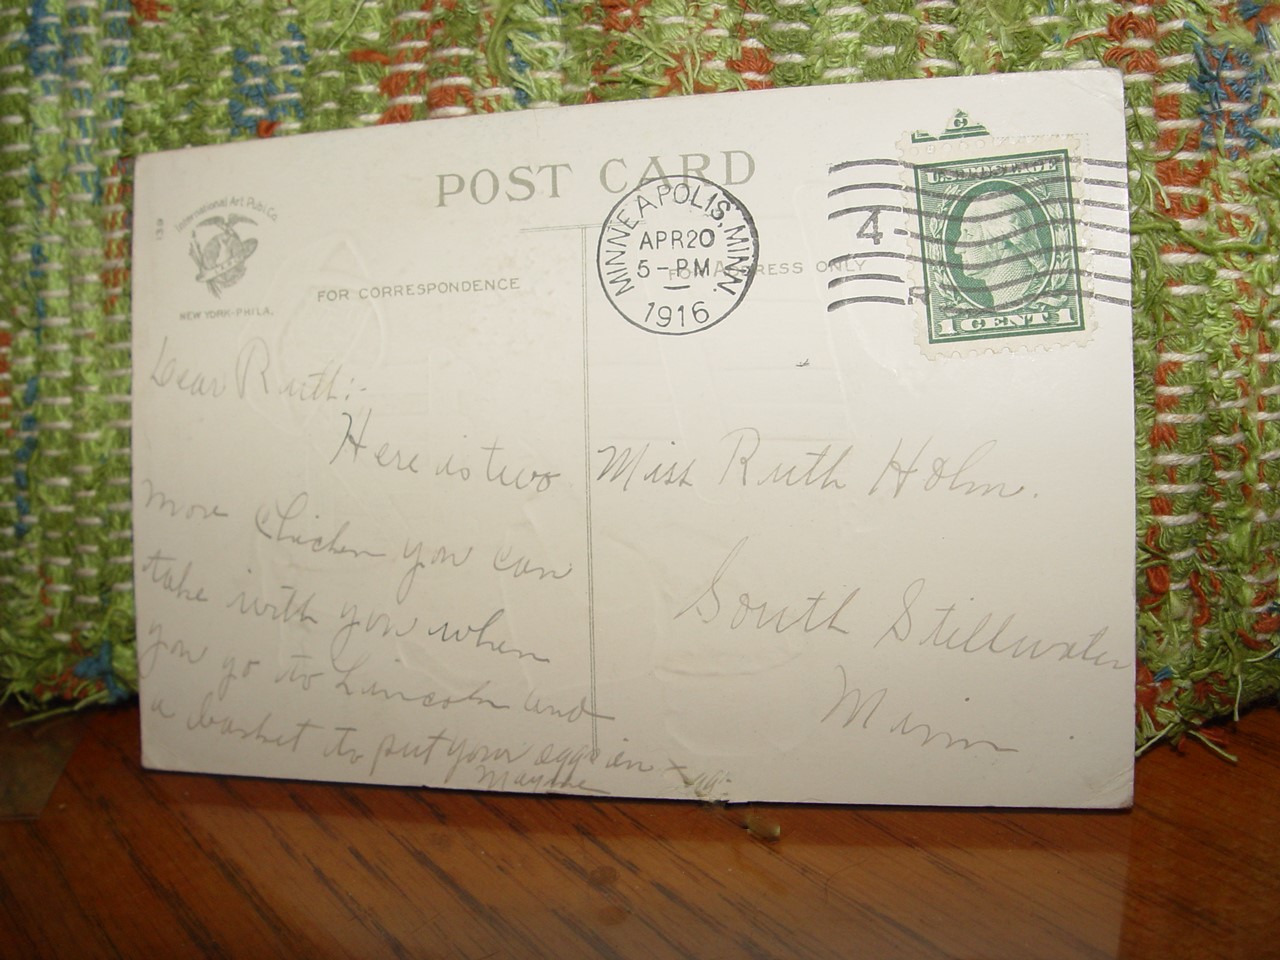 POST CARD
139
International Art Publ. Co.
NEW YORK-PHILA.
FOR CORRESPONDENCE
FOR ADDRESS ONLY
MINNEAPOLIS, MINN.
APR 20
5-PM
1916
4
U.S. POSTAGE
1 CENT 1
Dear Ruth:-
Here is two
more Chicken you can
take with you when
you go to Lincoln and
a basket to put your eggs in
Mayme
Miss Ruth Holm.
South Stillwater
Minn